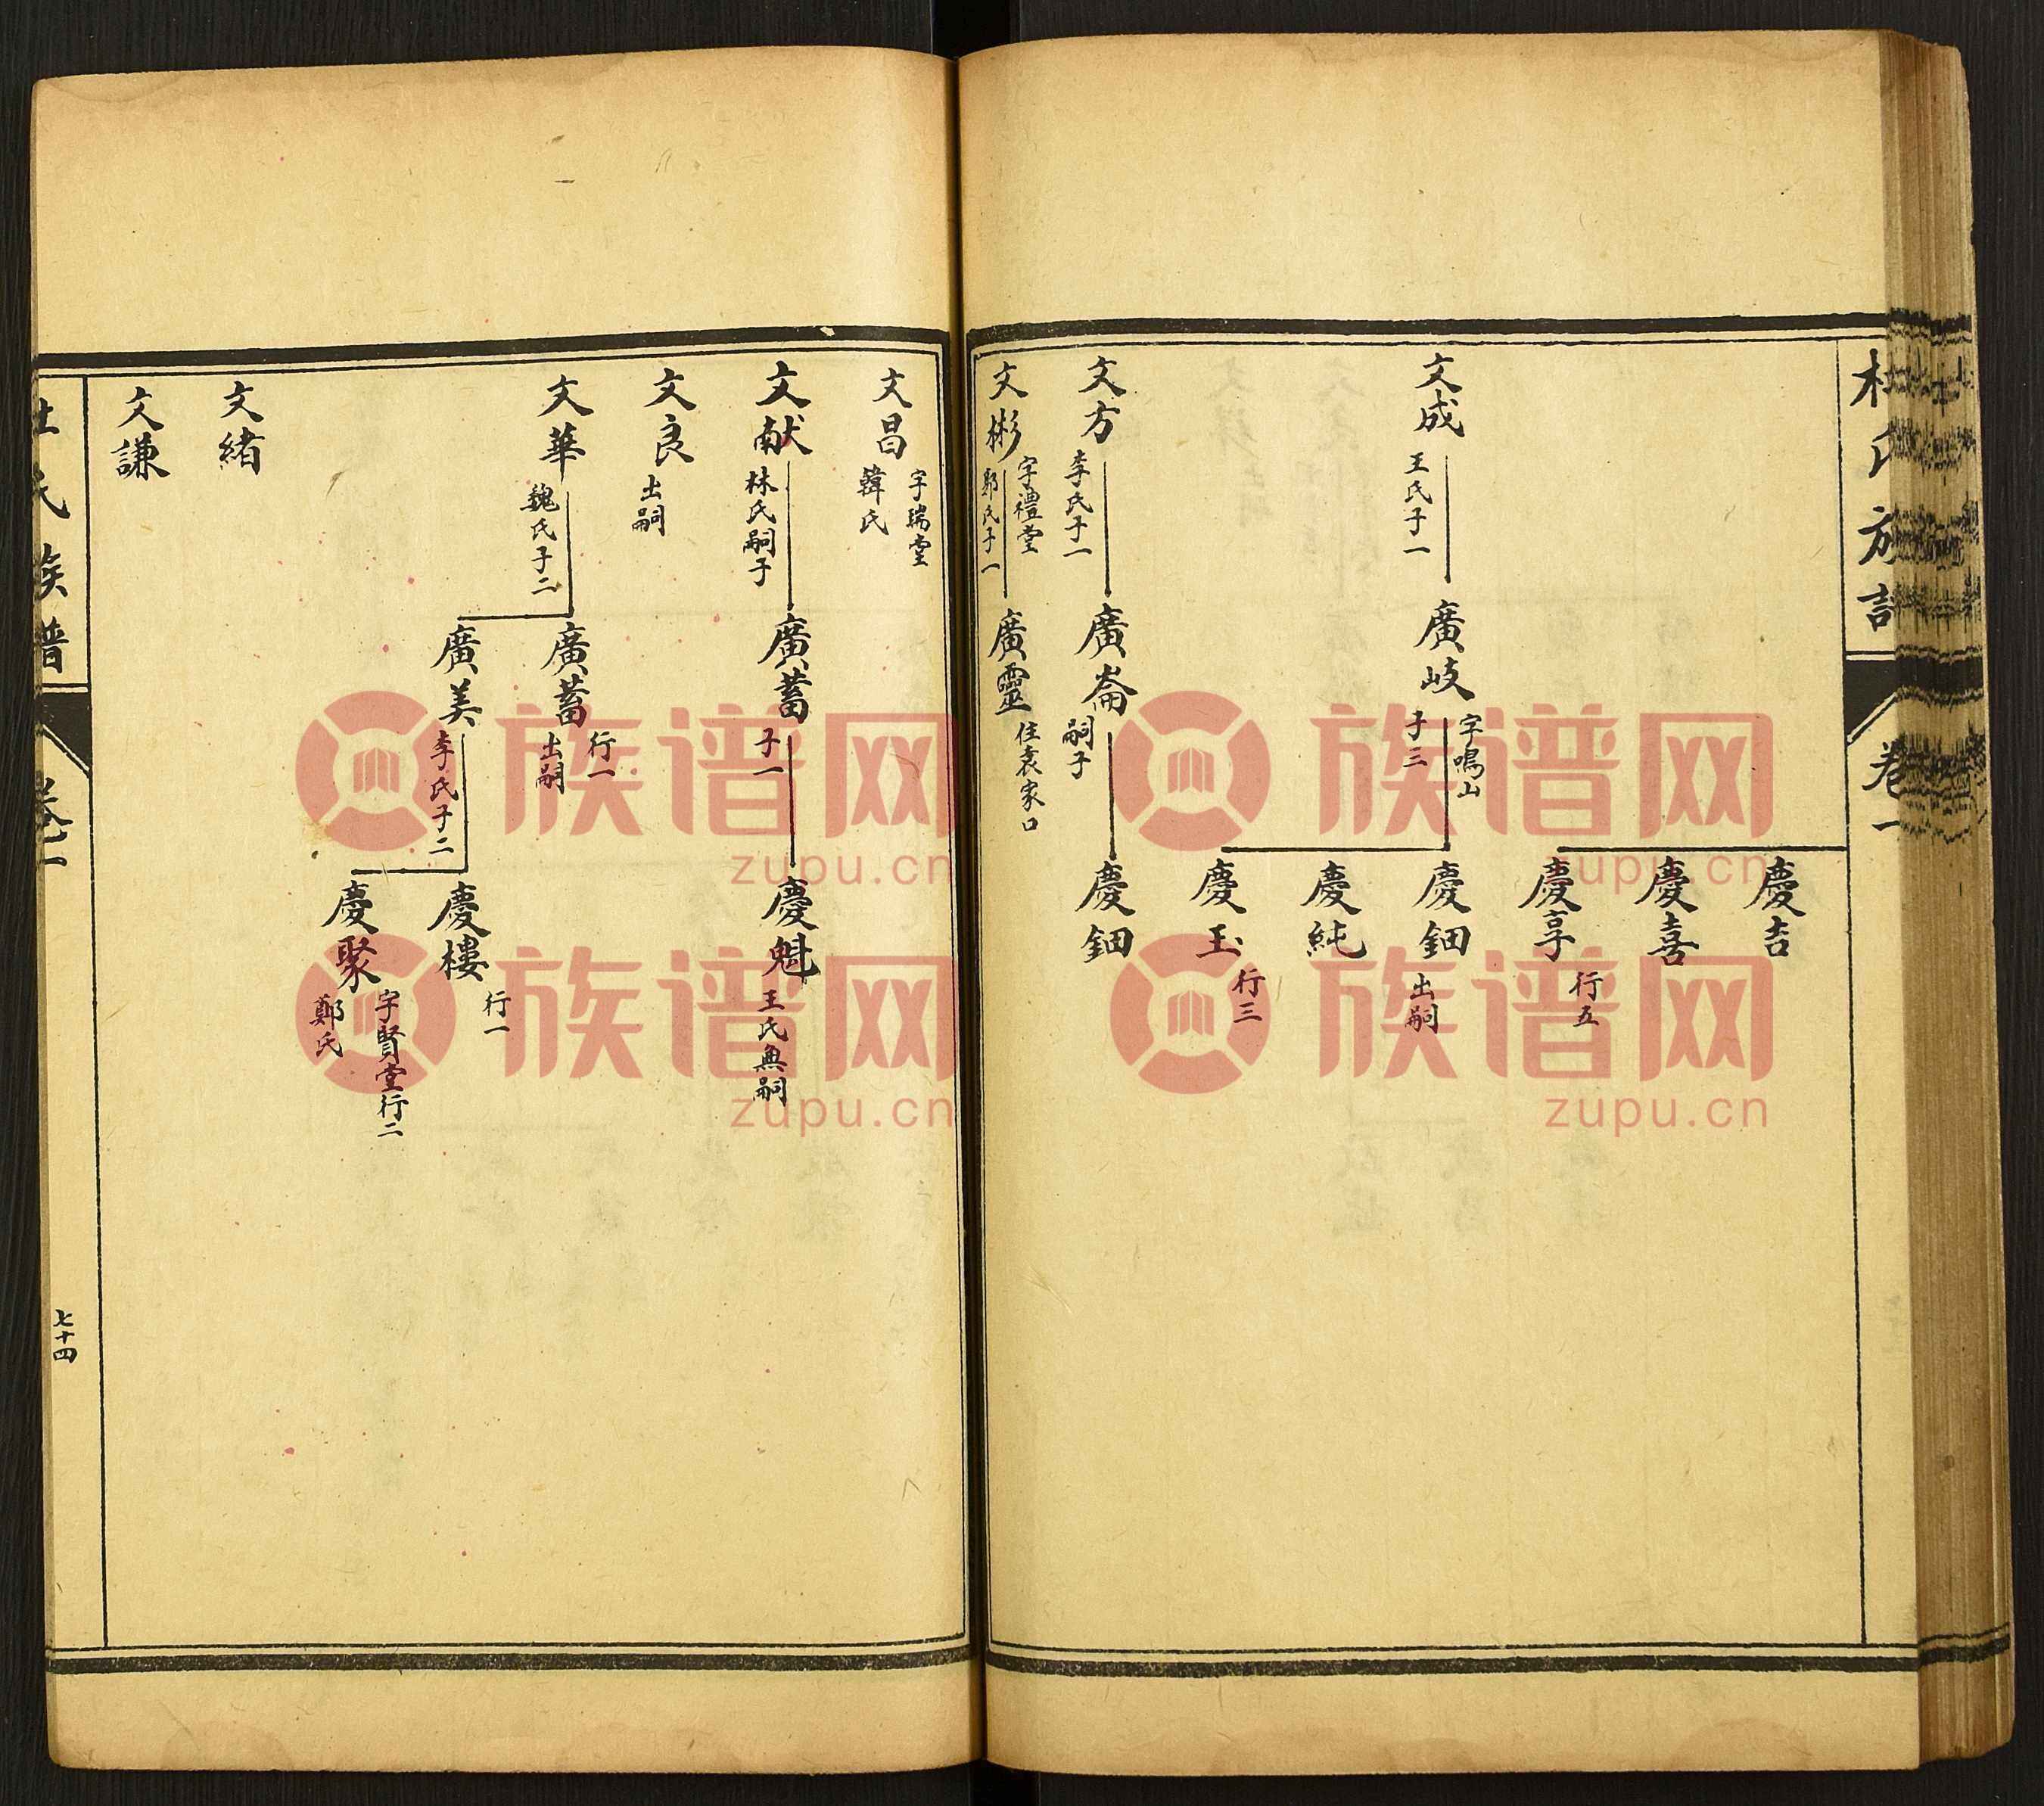 慶吉
慶喜
慶享 行五
文成 王氏子一
廣岐 字鳴山 子三
慶鈿 出嗣
慶純
慶玉 行三
文方 李氏子一
廣崙 嗣子
慶鈿
文彬 字禮堂 鄭氏子一
廣靈 住袁家口
文昌 字瑞堂 韓氏
文献 林氏嗣子
廣蓄 子一
慶魁 王氏無嗣
文良 出嗣
文華 魏氏子二
廣蓄 行一 出嗣
廣美 李氏子二
慶樓 行一
慶聚 字賢堂行二 鄭氏
文緒
文謙
氏族譜
卷一
七十四
族谱网
zupu.cn
族谱网
zupu.cn
族谱网
zupu.cn
族谱网
zupu.cn